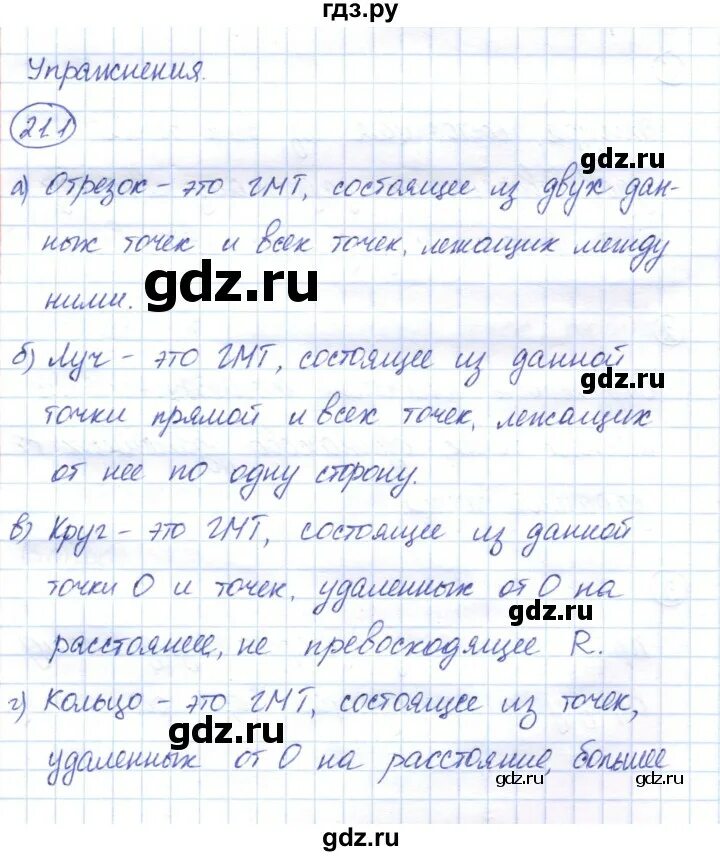 гдз.ру
Упражнения.
21.1
gdz.ru
а) Отрезок - это ГМТ, состоящее из двух дан-
ных точек и всех точек, лежащих между
gdz.ru
ними.
б) Луч - это ГМТ, состоящее из данной
gdz.ru
точки прямой и всех точек, лежащих
от нее по одну сторону.
в) Круг - это ГМТ, состоящее из данной
точки О и точек, удаленных от О на
gdz.ru
расстояние, не превосходящее R.
г) Кольцо - это ГМТ, состоящее из точек,
gdz.ru
удаленных от О на расстояние, большее
gdz.ru gdz.ru
gdz.ru